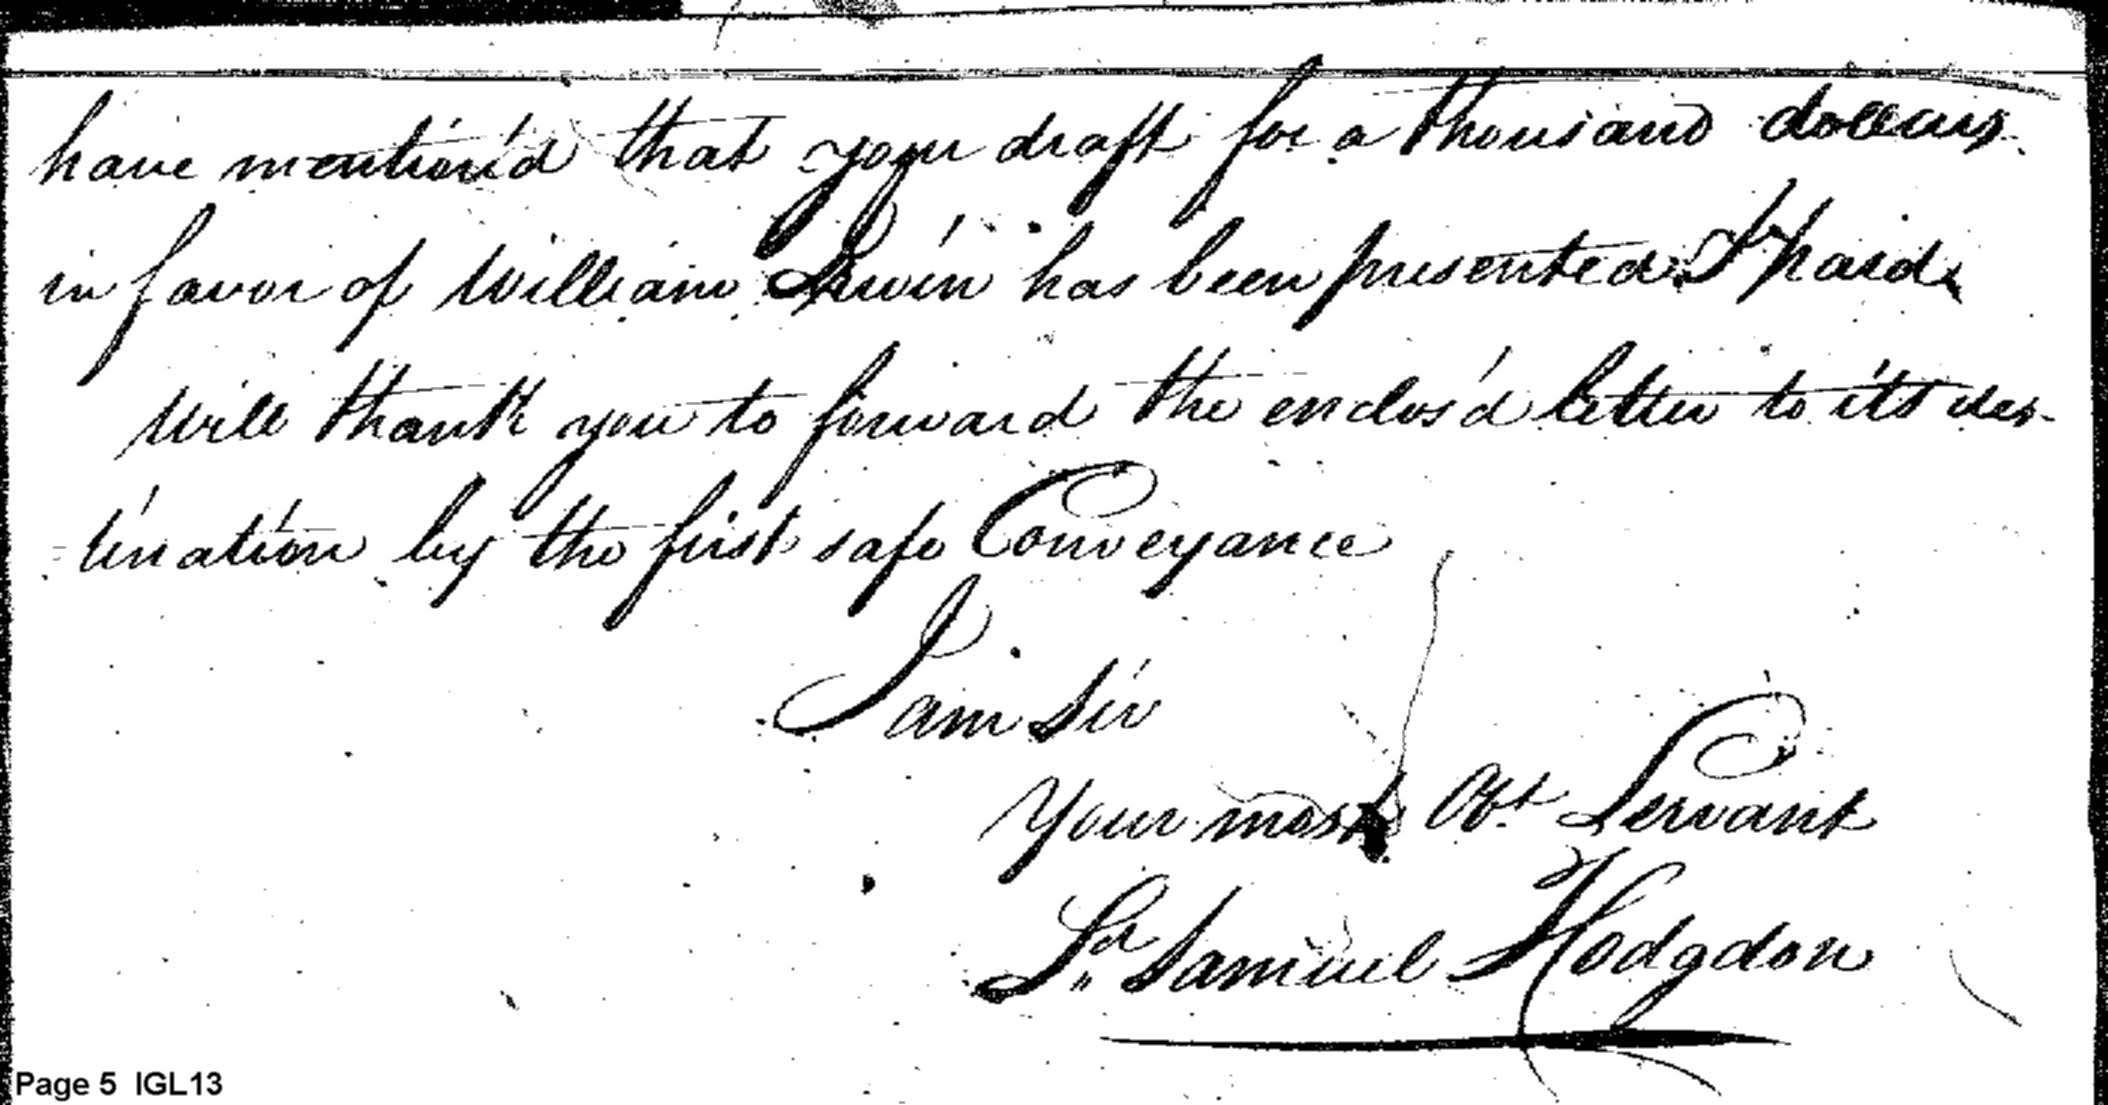 have mention'd that your draft for a thousand dollars
in favor of William Irwin has been presented & paid
Will thank you to forward the enclos'd letter to its des-
tination by the first safe Conveyance
I am Sir
Your most Obt Servant
Sd Samuel Hodgdon
Page 5 IGL13